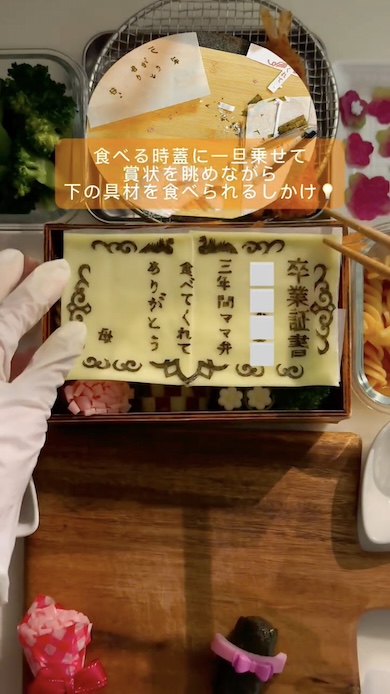 食べる時蓋に一旦乗せて
賞状を眺めながら
下の具材を食べられるしかけ
卒業証書
三年間ママ弁
食べてくれて
ありがとう
母